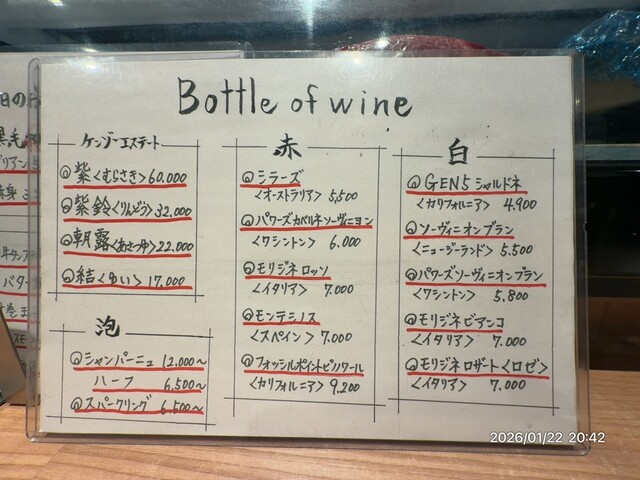 Bottle of wine
ケンゾーエステート
紫<むらさき>60,000
紫鈴<りんどう>32,000
朝露<あさつゆ>22,000
結<ゆい>17,000
泡
シャンパーニュ 12,000~
ハーフ 6,500~
スパークリング 6,500~
赤
シラーズ
<オーストラリア> 5,500
パワーズカベルネソーヴィニヨン
<ワシントン> 6,000
モリジネロッソ
<イタリア> 7,000
モンテシノス
<スペイン> 7,000
フォッシルポイントピノワール
<カリフォルニア> 9,200
白
GEN5 シャルドネ
<カリフォルニア> 4,900
ソーヴィニオンブラン
<ニュージーランド> 5,500
パワーズソーヴィニオンブラン
<ワシントン> 5,800
モリジネビアンコ
<イタリア> 7,000
モリジネロザート<ロゼ>
<イタリア> 7,000
2026/01/22 20:42